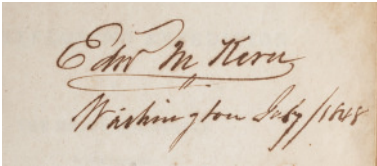 Edw M Kern
Washington July/1848